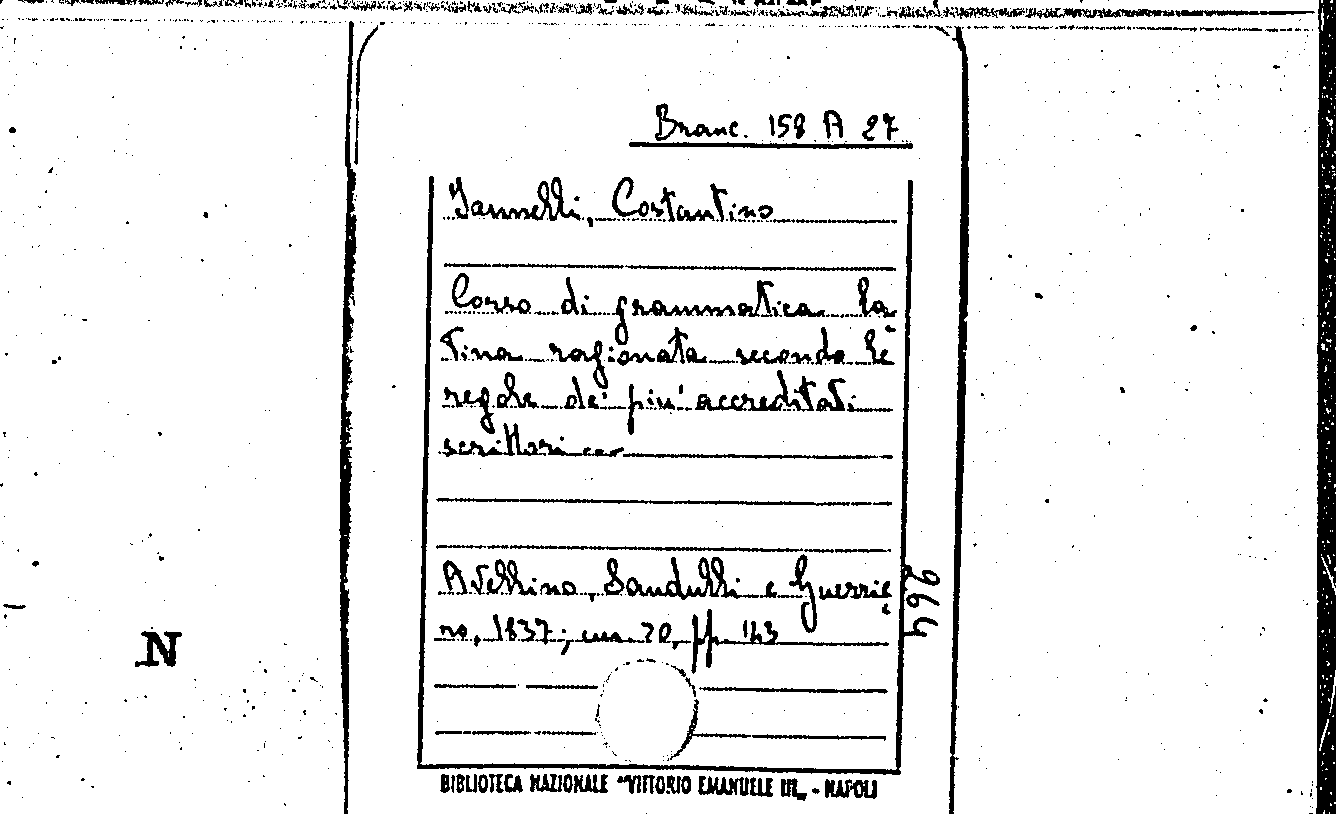 Branc. 158 A 27
Iannelli, Costantino
Corso di grammatica la
tina ragionata secondo le
regole de' piu' accreditati
scrittori ecc
Avellino, Sandulli e Guerrie
ro, 1837; cm. 20, pp. 143
264
N
BIBLIOTECA NAZIONALE "VITTORIO EMANUELE III„ - NAPOLI